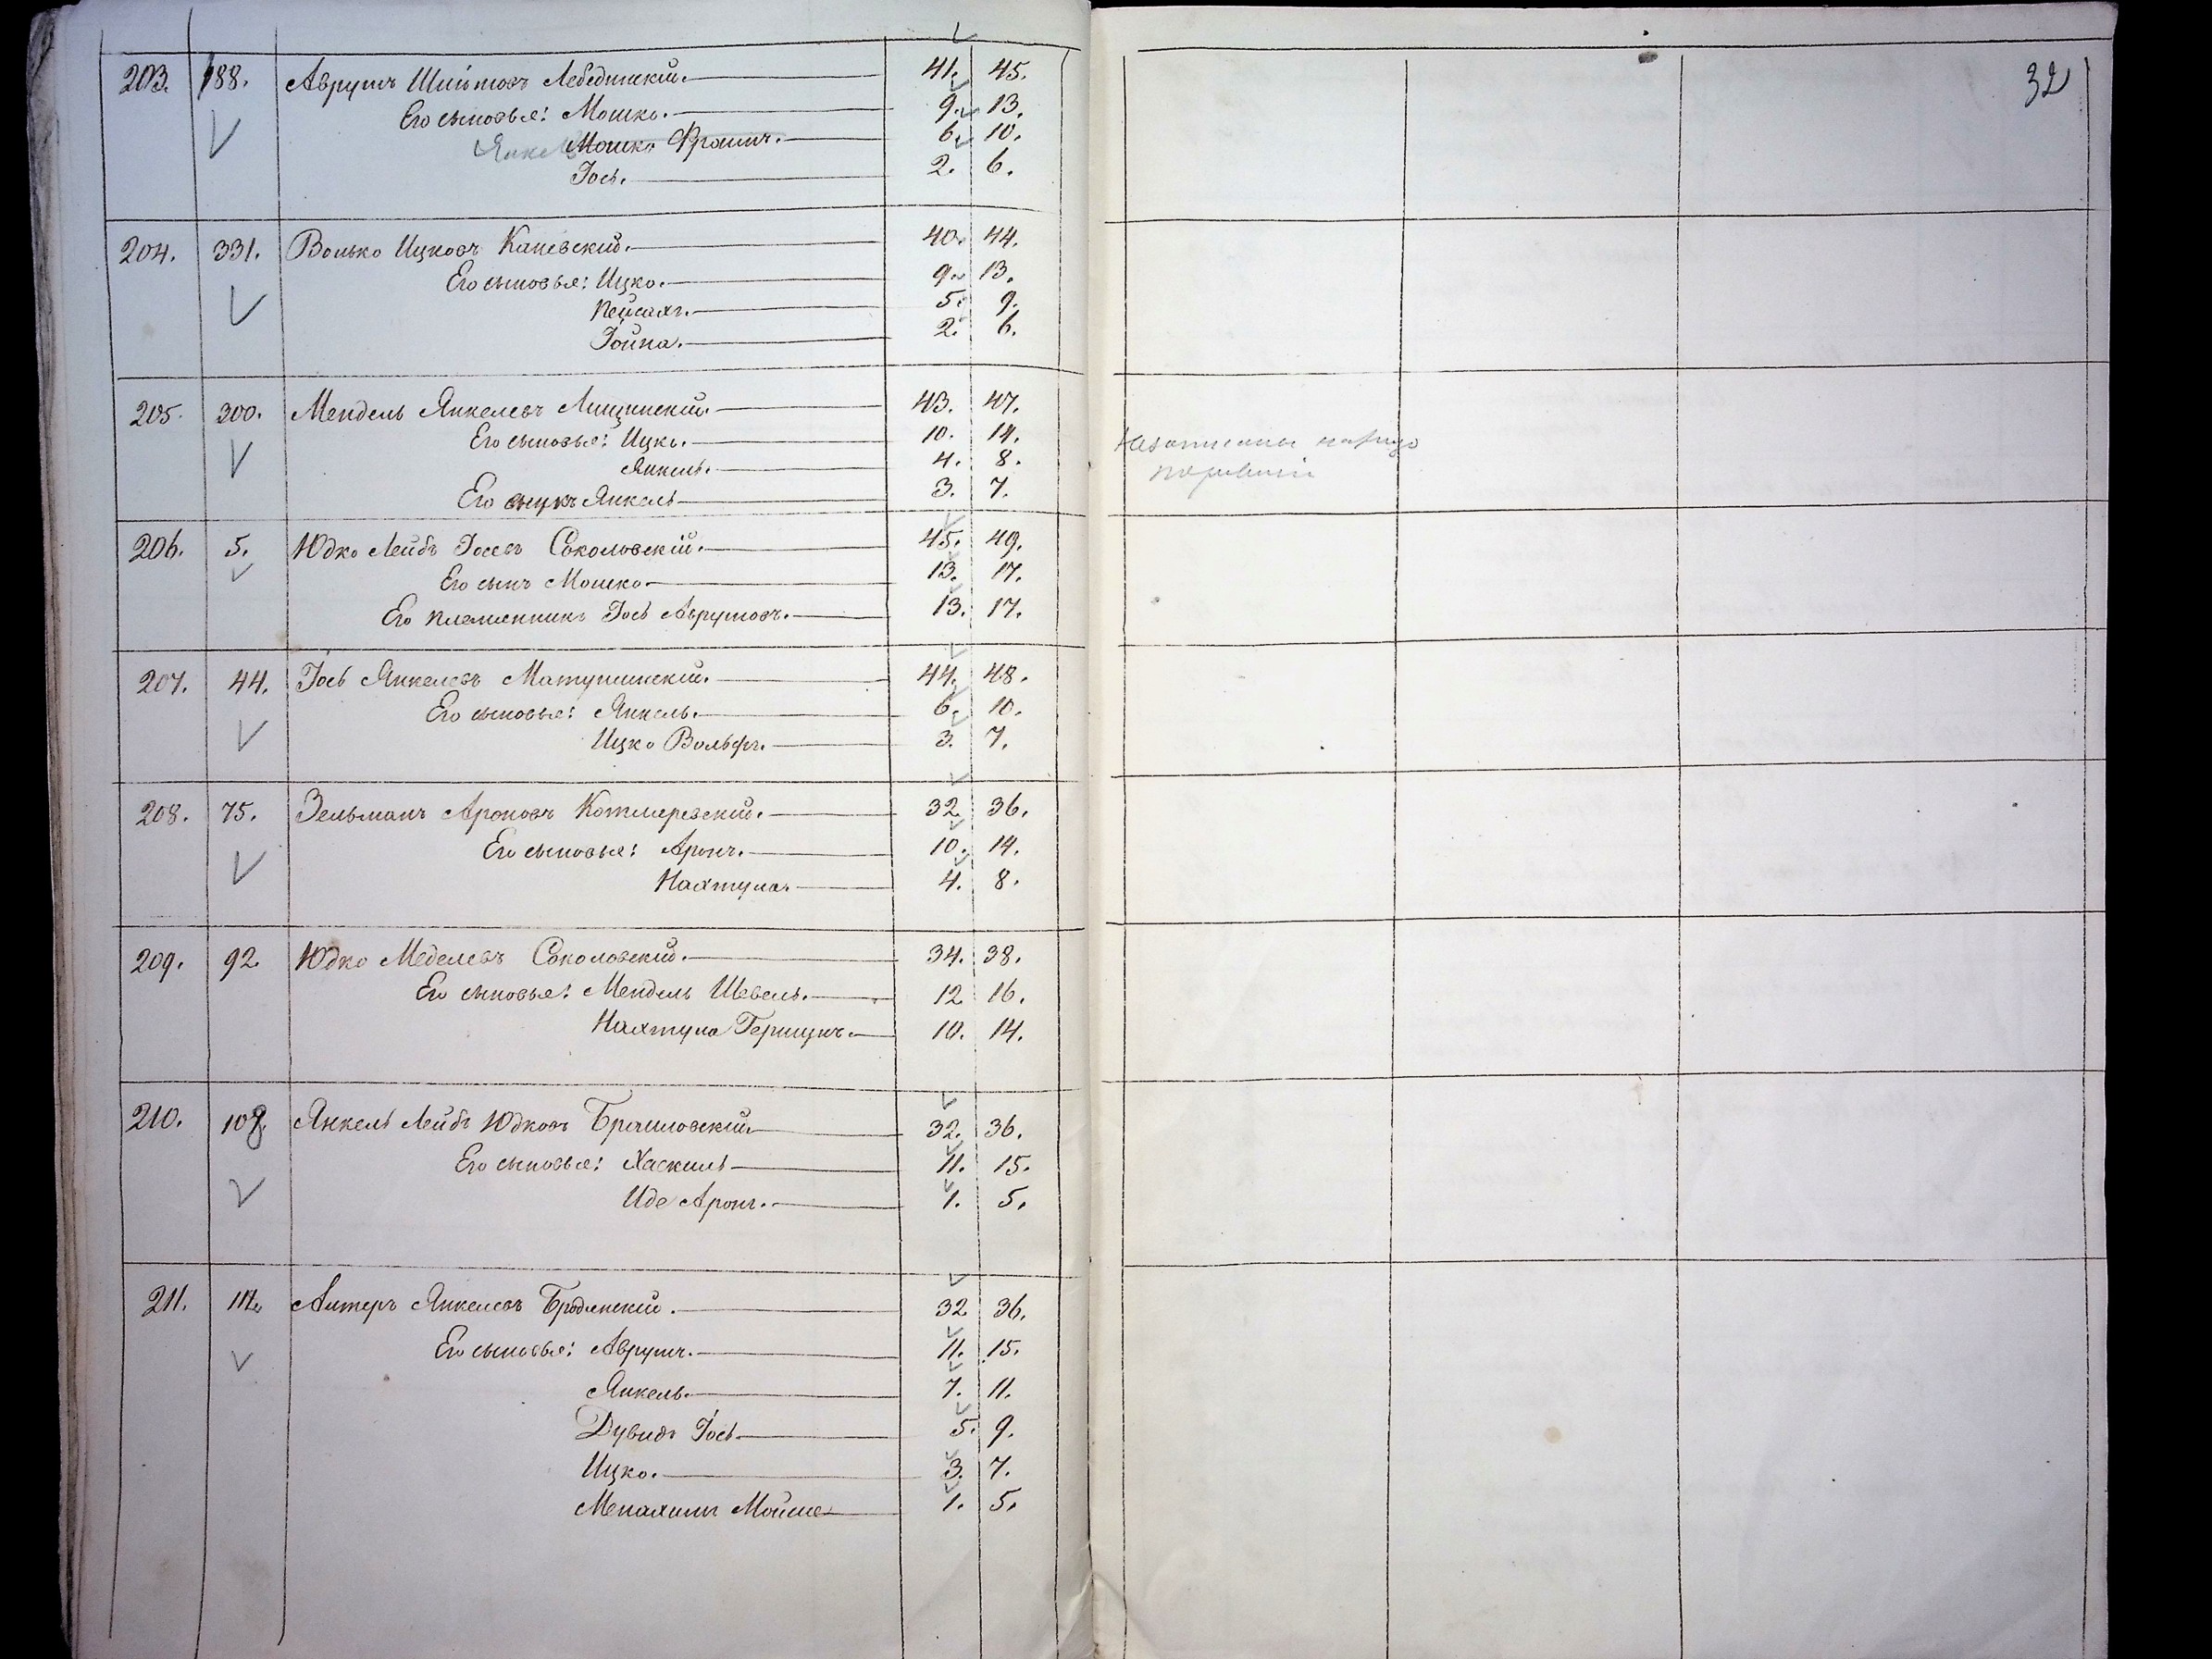 32
203. 188. Аврумъ Шлиомовъ Лебединскій. 41. 45.
Его сыновья: Мошко. 9. 13.
Янкель Мошко Фроимъ. 6. 10.
Іось. 2. 6.
204. 331. Волько Ицковъ Каневскій. 40. 44.
Его сыновья: Ицко. 9. 13.
Пейсахъ. 5. 9.
Іойна. 2. 6.
205. 300. Мендель Янкелевъ Лищинскій. 43. 47.
Его сыновья: Ицко. 10. 14.
Янкель. 4. 8.
Его внукъ Янкель 3. 7.
206. 5. Юдко Лейбъ Іосевъ Соколовскій. 45. 49.
Его сынъ Мошко 13. 17.
Его племянникъ Іось Аврумовъ. 13. 17.
207. 44. Іось Янкелевъ Матушинскій. 44. 48.
Его сыновья: Янкель. 6. 10.
Ицко Вольфъ. 3. 7.
208. 75. Зельманъ Ароновъ Котляревскій. 32 36.
Его сыновья: Аронъ. 10. 14.
Нахтула. 4. 8.
209. 92. Юдко Меделевъ Соколовскій. 34. 38.
Его сыновья: Мендель Шевель. 12 16.
Нахтула Гершунъ. 10. 14.
210. 108. Янкель Лейбъ Юдковъ Браиловскій 32. 36.
Его сыновья: Хаскель 11. 15.
Иде Аронъ. 1. 5.
211. Алтеръ Янкелевъ Бродянскій. 32 36.
Его сыновья: Аврумъ. 11. 15.
Янкель. 7. 11.
Дувидъ Іось 5. 9.
Ицко. 3. 7.
Менахимъ Мойше 1. 5.